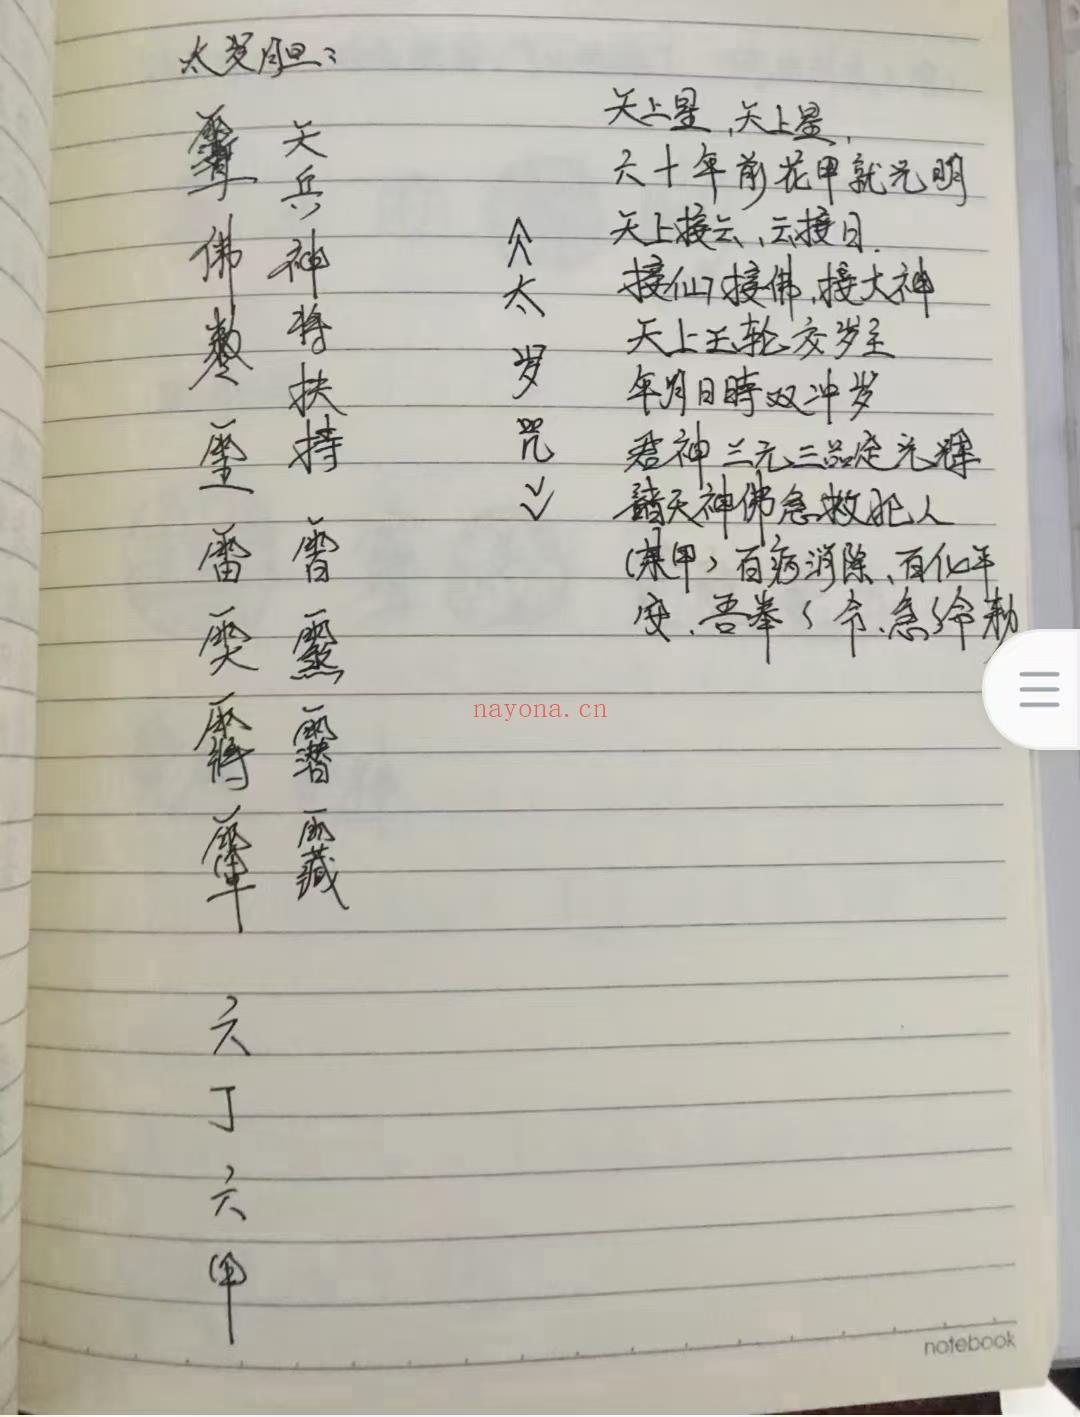 太岁胆：
佛敕
雷
六丁六甲
天兵神将扶持
《太岁咒》
天上星,天上星,
六十年前花甲就光明
天上接云、云接日.
接仙接佛,接大神
天上王轮交岁主
年月日時双冲岁
君神三元三品定光辉
諸天神佛急救犯人
(某甲)百病消除、百化年
灾、吾奉〈令、急〈令勅
nayona.cn
notebook